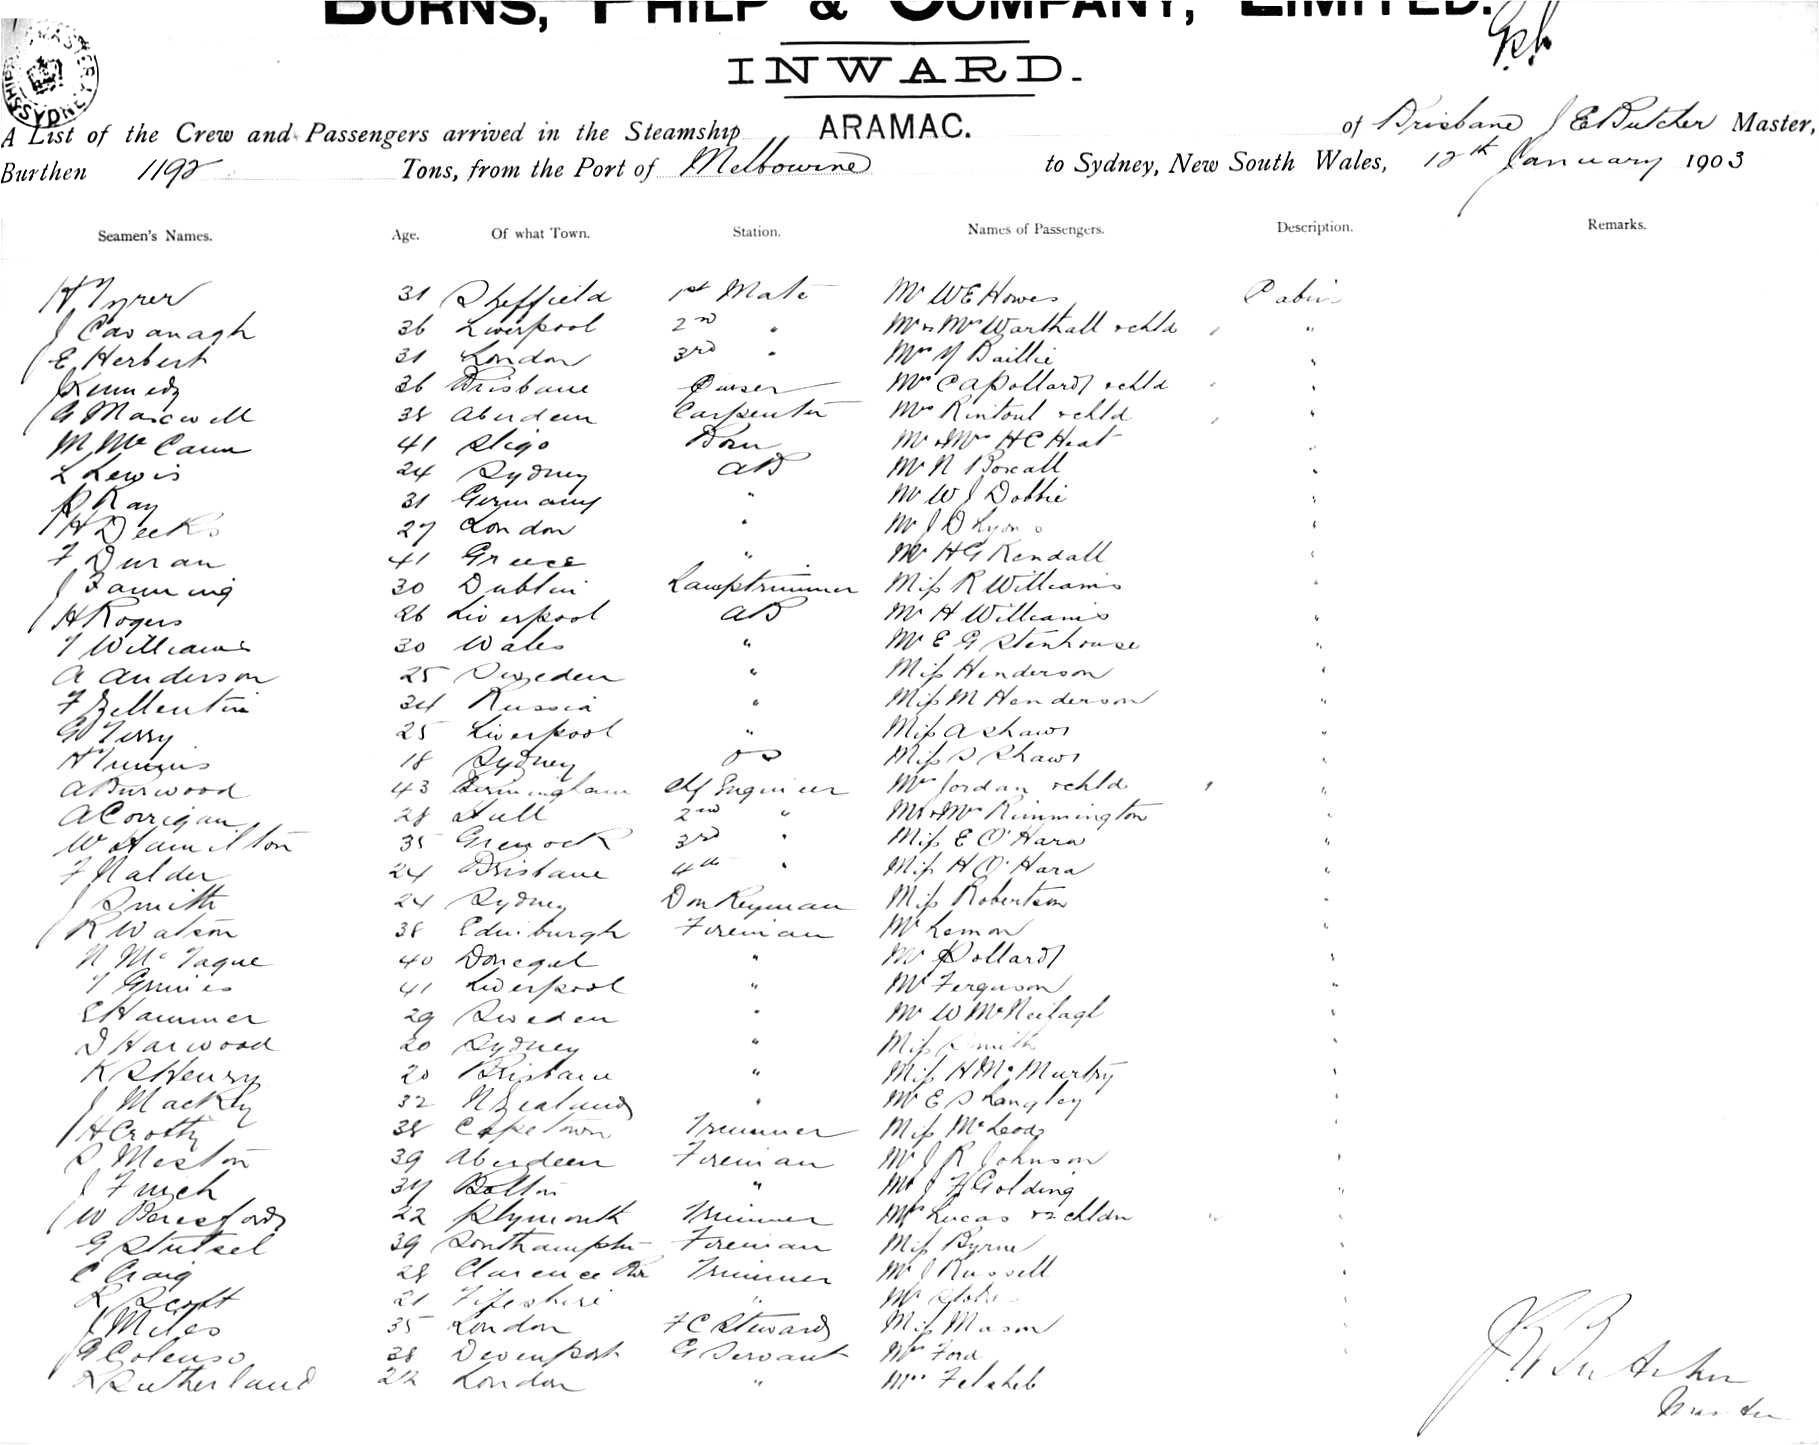 BURNS, PHILP & COMPANY, LIMITED.
INWARD.
A List of the Crew and Passengers arrived in the Steamship ARAMAC. of Brisbane J E Butcher Master,
Burthen 1192 Tons, from the Port of Melbourne to Sydney, New South Wales, 12th January 1903
Seamen's Names. Age. Of what Town. Station. Names of Passengers. Description. Remarks.
H Tyrer 31 Sheffield 1st Mate Mr W E Howes Cabin
J Cavanagh 36 Liverpool 2nd " Mr & Mrs Warthall & chld "
E Herbert 31 London 3rd " Mrs Y Baillie "
J Kennedy 36 Brisbane Purser Mrs C A Pollard & chld "
A Maxwell 38 Aberdeen Carpenter Mrs Rintoul & chld "
M McCann 41 Sligo Bosn Mr & Mrs H C Heat "
L Lewis 24 Sydney AB Mr N Boxall "
P Ray 31 Germany " Mr W J Dobbie "
H Deeks 27 London " Mr J D Lyons "
F Duran 41 Greece " Mr H G Kendall "
J Fanning 30 Dublin Lamptrimmer Miss R Williams "
H Rogers 26 Liverpool AB Mr H Williams "
T Williams 30 Wales " Mr E G Stenhouse "
A Anderson 25 Sweden " Miss Henderson "
F Zellentin 34 Russia " Miss M Henderson "
G Terry 25 Liverpool " Miss A Shaw "
H 18 Sydney OS Miss S Shaw "
A Burwood 43 Birmingham Chf Engineer Mrs Jordan & chld "
A Corrigan 28 Hull 2nd " Mr & Mrs Rimmington "
W Hamilton 35 Greenock 3rd " Miss E O'Hara "
F Nalder 24 Brisbane 4th " Miss H O'Hara "
J Smith 24 Sydney Donkeyman Miss Robertson "
R Watson 38 Edinburgh Fireman Mr Lemon "
N McTague 40 Donegal " Mr Pollard "
T Grimes 41 Liverpool " Mr Ferguson "
E Hammer 29 Sweden " Mr W McNeilage "
D Harwood 20 Sydney " Miss Smith "
K S Henry 20 Brisbane " Miss H McMurtry "
J Mackey 32 N Zealand " Mr E S Langley "
H Crotty 38 Capetown Trimmer Miss McLeod "
S Meston 39 Aberdeen Fireman Mr J R Johnson "
J Finch 34 Bolton " Mr J H Golding "
W Beresford 22 Plymouth Trimmer Mrs Lucas & 2 chldn "
G Stutsel 39 Southampton Fireman Miss Byrne "
C Craig 28 Clarence Rvr Trimmer Mr J Russell "
R Scott 21 Fifeshire " Mr "
J Miles 35 London F C Steward Miss Mason "
A Colenso 38 Devenport G Servant Mrs Ford "
L Sutherland 22 London " Mrs
J E Butcher
Master